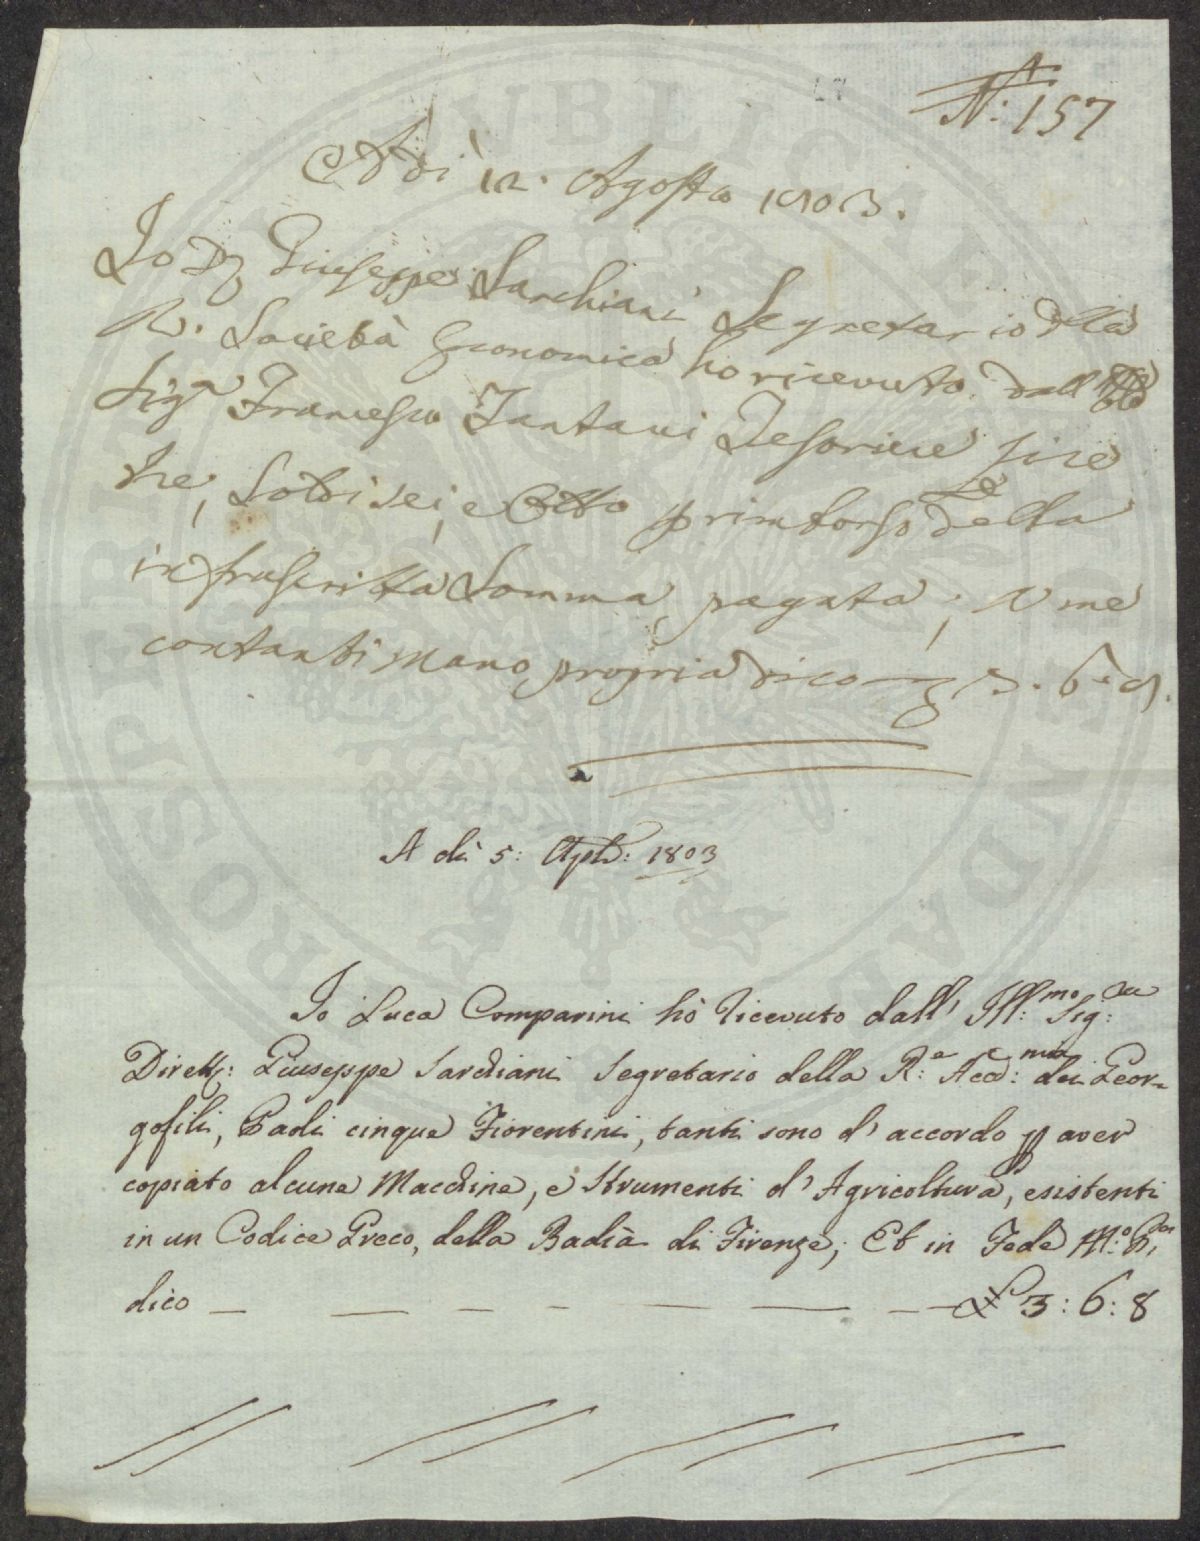 N: 157
Adì 12. Agosto 1803.
Io Dr Giuseppe Sarchiani Segretario della
R. Società Economica ho ricevuto dall
Sigr Francesco Tartani Tesoriere lire
tre, Soldi sei, e Otto p rimborso della
infrascritta Somma pagata,
contanti mano propria dico 3. 6. 8.
A dì 5: Aple: 1803
Io Luca Comparini hò ricevuto dall' Ill:mo Sig:
Dirett: Giuseppe Sarchiani Segretario della R:e Accd:mia dei Geor-
gofili, Paoli cinque Fiorentini, tanti sono d' accordo p aver
copiato alcune Macchine, e Strumenti d' Agricoltura, esistenti
in un Codice Greco, della Badia di Firenze; Et in Fede M:o
dico £ 3: 6: 8